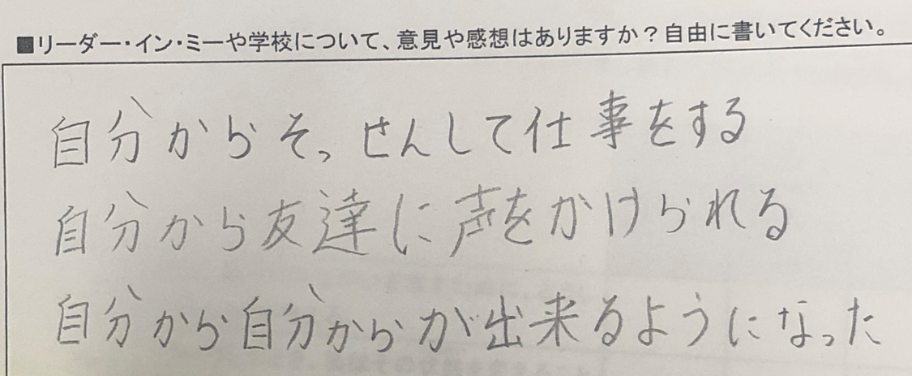 ■リーダー・イン・ミーや学校について、意見や感想はありますか？自由に書いてください。
自分からそっせんして仕事をする
自分から友達に声をかけられる
自分から自分からが出来るようになった